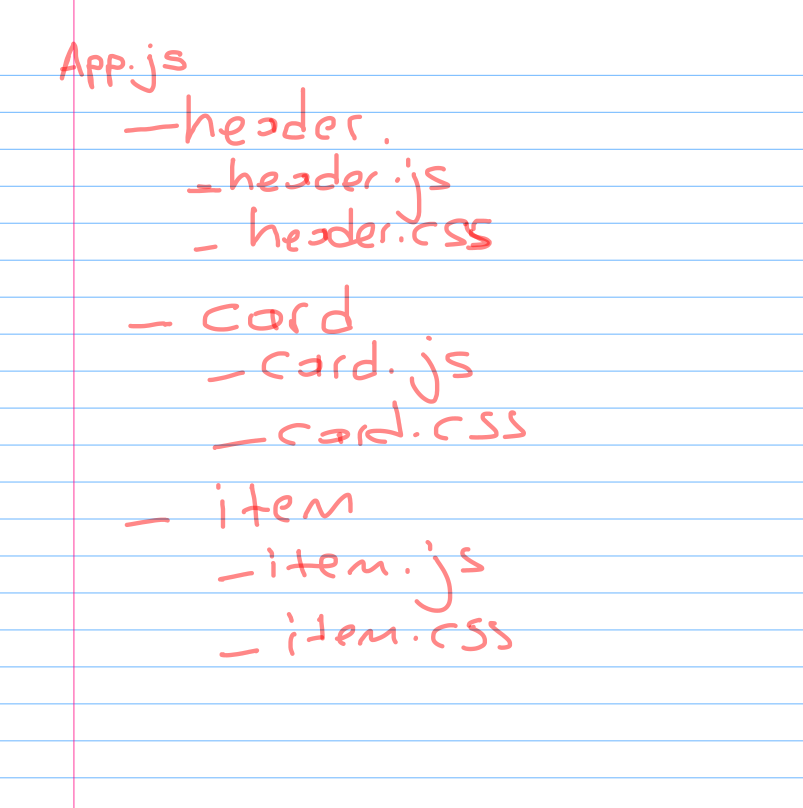 App.js
- header.
- header.js
- header.css
- card
- card.js
- card.css
- item
- item.js
- item.css